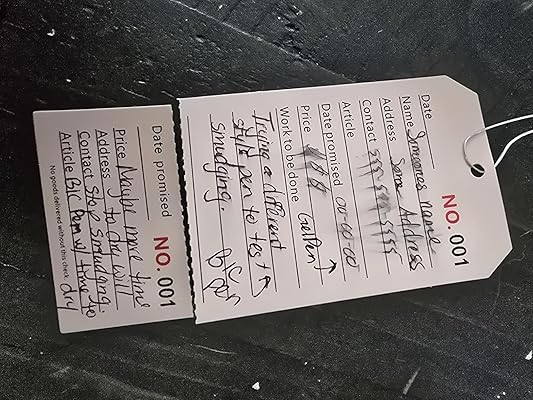 NO. 001
Date
Name Someones name
Address Some Address
Contact 555-555-5555
Article
Date promised 00-00-00
Price
Work to be done Gel Pen ↑
Trying a different
style pen to test ↑
smudging.
Date promised NO. 001
Price Maybe more time
Address to dry will
Contact Stop Smudging.
Article BIC Pen w/ time to dry
No goods delivered without this check